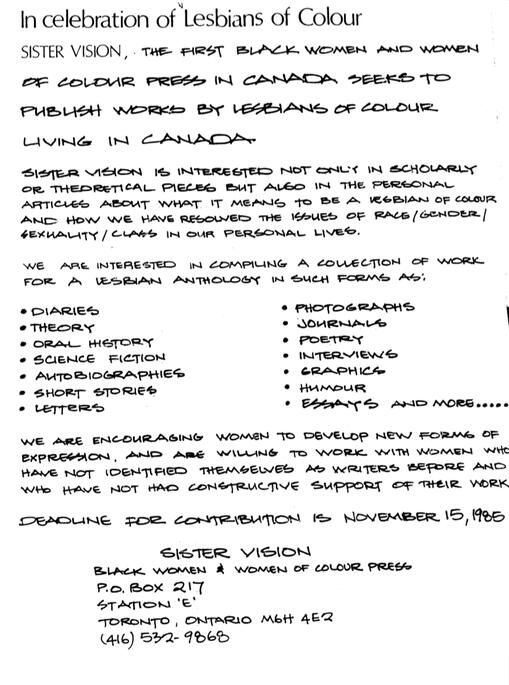 In celebration of Lesbians of Colour
SISTER VISION, THE FIRST BLACK WOMEN AND WOMEN
OF COLOUR PRESS IN CANADA SEEKS TO
PUBLISH WORKS BY LESBIANS OF COLOUR
LIVING IN CANADA.
SISTER VISION IS INTERESTED NOT ONLY IN SCHOLARLY
OR THEORETICAL PIECES BUT ALSO IN THE PERSONAL
ARTICLES ABOUT WHAT IT MEANS TO BE A LESBIAN OF COLOUR
AND HOW WE HAVE RESOLVED THE ISSUES OF RACE/GENDER/
SEXUALITY/CLASS IN OUR PERSONAL LIVES.
WE ARE INTERESTED IN COMPILING A COLLECTION OF WORK
FOR A LESBIAN ANTHOLOGY IN SUCH FORMS AS:
• DIARIES
• THEORY
• ORAL HISTORY
• SCIENCE FICTION
• AUTOBIOGRAPHIES
• SHORT STORIES
• LETTERS
• PHOTOGRAPHS
• JOURNALS
• POETRY
• INTERVIEWS
• GRAPHICS
• HUMOUR
• ESSAYS AND MORE.....
WE ARE ENCOURAGING WOMEN TO DEVELOP NEW FORMS OF
EXPRESSION, AND ARE WILLING TO WORK WITH WOMEN WHO
HAVE NOT IDENTIFIED THEMSELVES AS WRITERS BEFORE AND
WHO HAVE NOT HAD CONSTRUCTIVE SUPPORT OF THEIR WORK
DEADLINE FOR CONTRIBUTION IS NOVEMBER 15, 1985
SISTER VISION
BLACK WOMEN & WOMEN OF COLOUR PRESS
P.O. BOX 217
STATION 'E'
TORONTO, ONTARIO M6H 4E2
(416) 532-9868